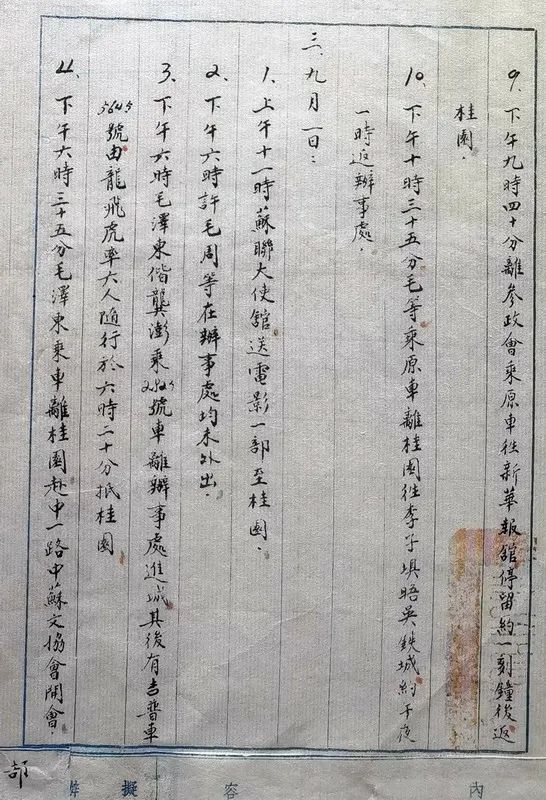 9、下午九時四十分離參政會乘原車往新華報館停留約一刻鐘後返
桂園.
10、下午十時三十五分毛等乘原車離桂園往李子壩晤吳鉄城約午夜
一時返辦事處.
三、九月一日:
1、上午十一時蘇聯大使舘送電影一部至桂園.
2、下午六時許毛周等在辦事處均未外出.
3、下午六時毛澤東偕龔澎乘2829號車離辦事處進城其後有吉普車
5645號由龍飛虎率六人隨行於六時二十分抵桂園
4、下午六時三十五分毛澤東乘車離桂園赴中一路中蘇文協會開會.
內
容
擬
部